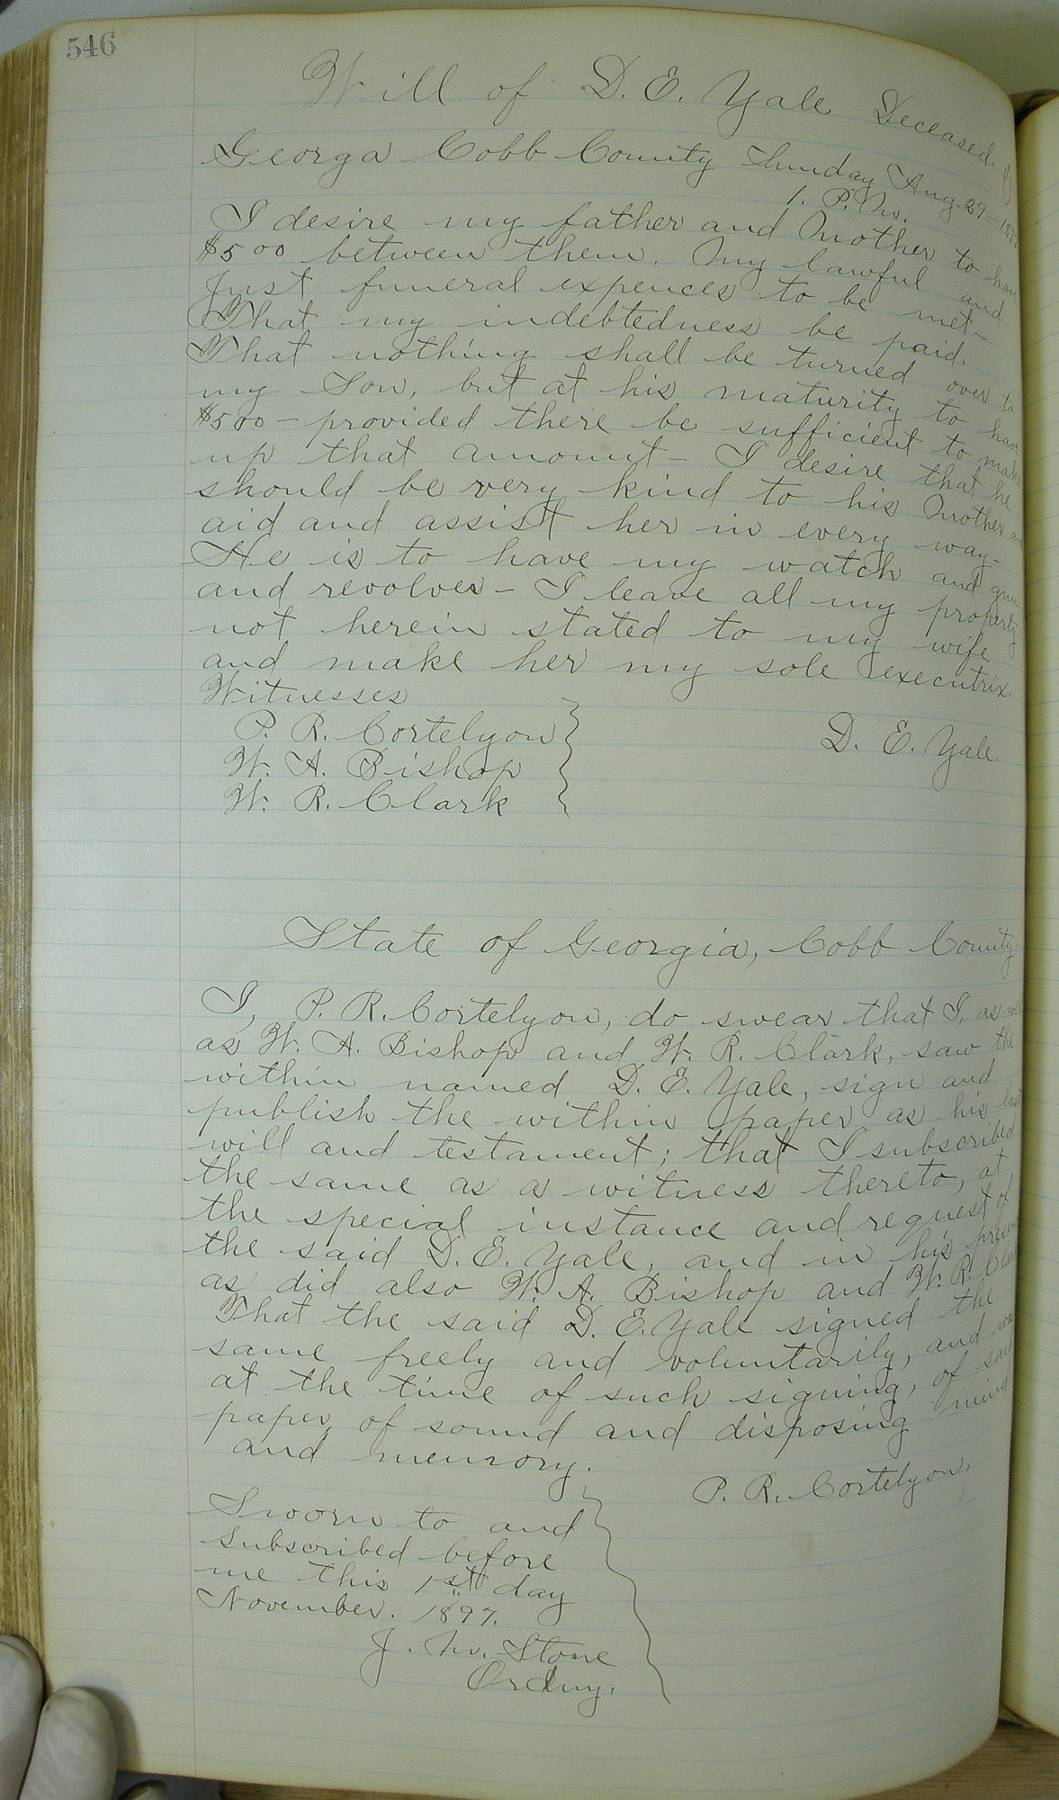 546
Will of D. E. Yale Deceased.
Georga Cobb County Sunday Aug. 29 - 1897
1. P. M.
I desire my father and Mother to have
$500 between them. My lawful and
just funeral expences to be met -
That my indebtedness be paid.
That nothing shall be turned over to
my Son, but at his maturity to have
$500 - provided there be sufficient to make
up that amount - I desire that he
should be very kind to his Mother and
aid and assist her in every way -
He is to have my watch and gun
and revolver - I leave all my property
not herein stated to my wife
and make her my sole executrix.
Witnesses
P. R. Cortelyou
W. A. Bishop
W. R. Clark
D. E. Yale.
State of Georgia, Cobb County.
I, P. R. Cortelyou, do swear that I, as well
as W. A. Bishop and W. R. Clark, saw the
within named D. E. Yale, sign and
publish the within paper as his last
will and testament; that I subscribed
the same as a witness thereto, at
the special instance and request of
the said D. E. Yale, and in his
as did also W. A. Bishop and W. R. Clark
That the said D. E. Yale signed the
same freely and voluntarily, and was
at the time of such signing, of said
paper, of sound and disposing mind
and memory.
P. R. Cortelyou.
Sworn to and
subscribed before
me this 1st day
November. 1897.
J. M. Stone
Ordny.